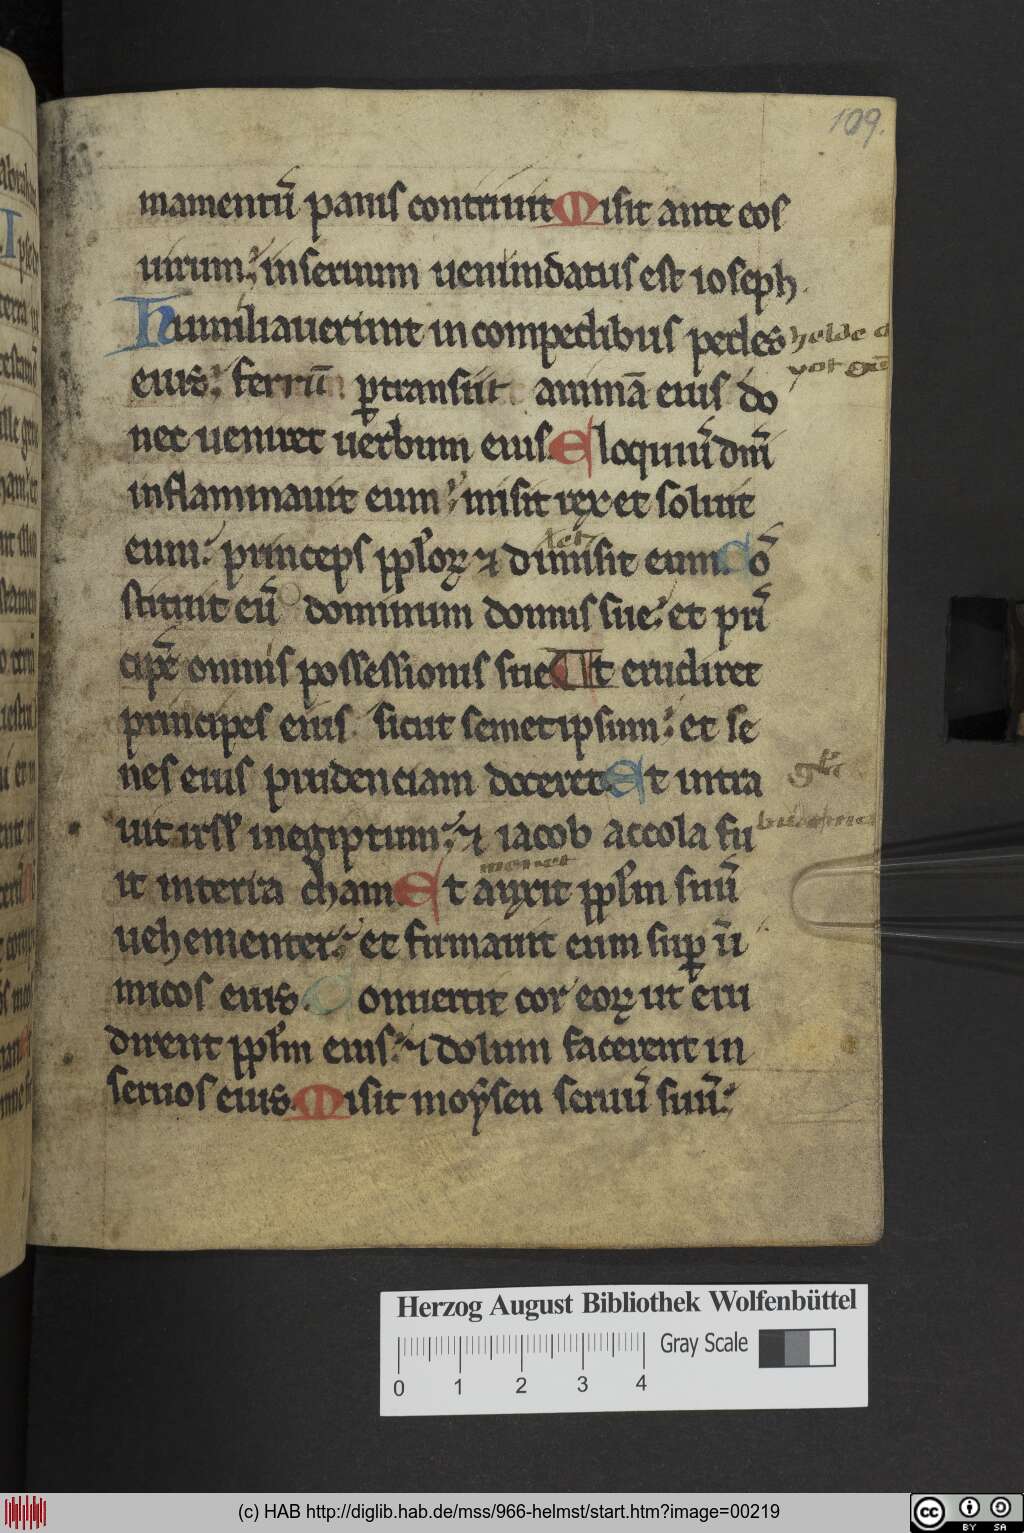 109.
mamentū panis contriuit Misit ante eos
uirum: in seruum uenundatus est ioseph.
Humiliauerunt in compedibus pedes
eius: ferrū ꝑtransiit animā eius do
nec ueniret uerbum eius. Eloquiū dn̄i
inflammauit eum: misit rex et soluit
eum: princeps pploꝝ ⁊ dimisit eum. Cō
stituit eū dominum domus sue: et prī
cipē omnis possessionis sue Ut erudiret
principes eius sicut semetipsum: et se
nes eius prudenciam doceret Et intra
uit isrł in egiptum: ⁊ iacob accola fu
it in terra cham Et auxit pplm suū
uehementer: et firmauit eum suꝑ ī
micos eius. Conuertit cor eoꝝ ut eru
dirent pplm eius: ⁊ dolum facerent in
seruos eius. Misit moẏsen seruū suū:
Herzog August Bibliothek Wolfenbüttel
Gray Scale
0 1 2 3 4
(c) HAB http://diglib.hab.de/mss/966-helmst/start.htm?image=00219
cc BY SA